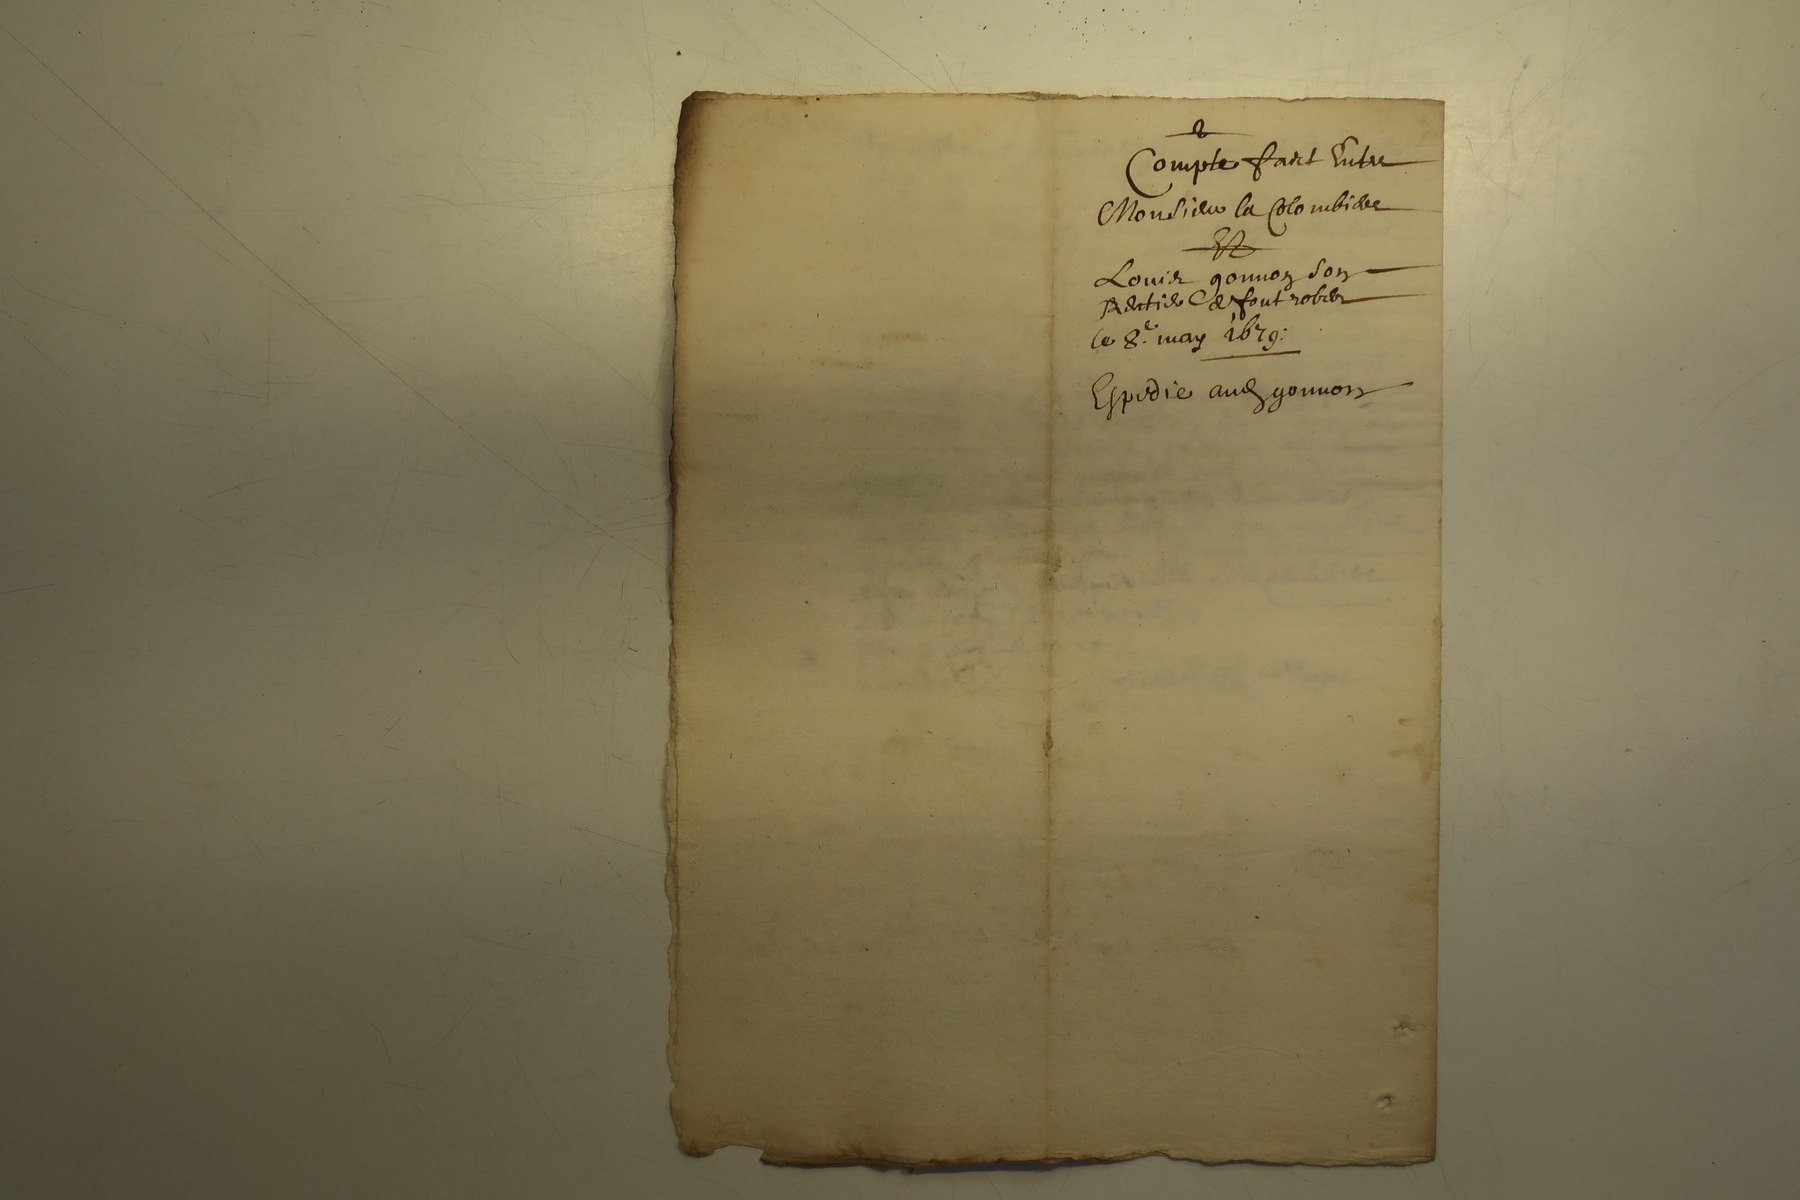 Compte faict Entre
Monsieur la Colombiere
Et
Louis gonnon son
de font robert
le 8.e may 1679:
Expedie aud gonnon